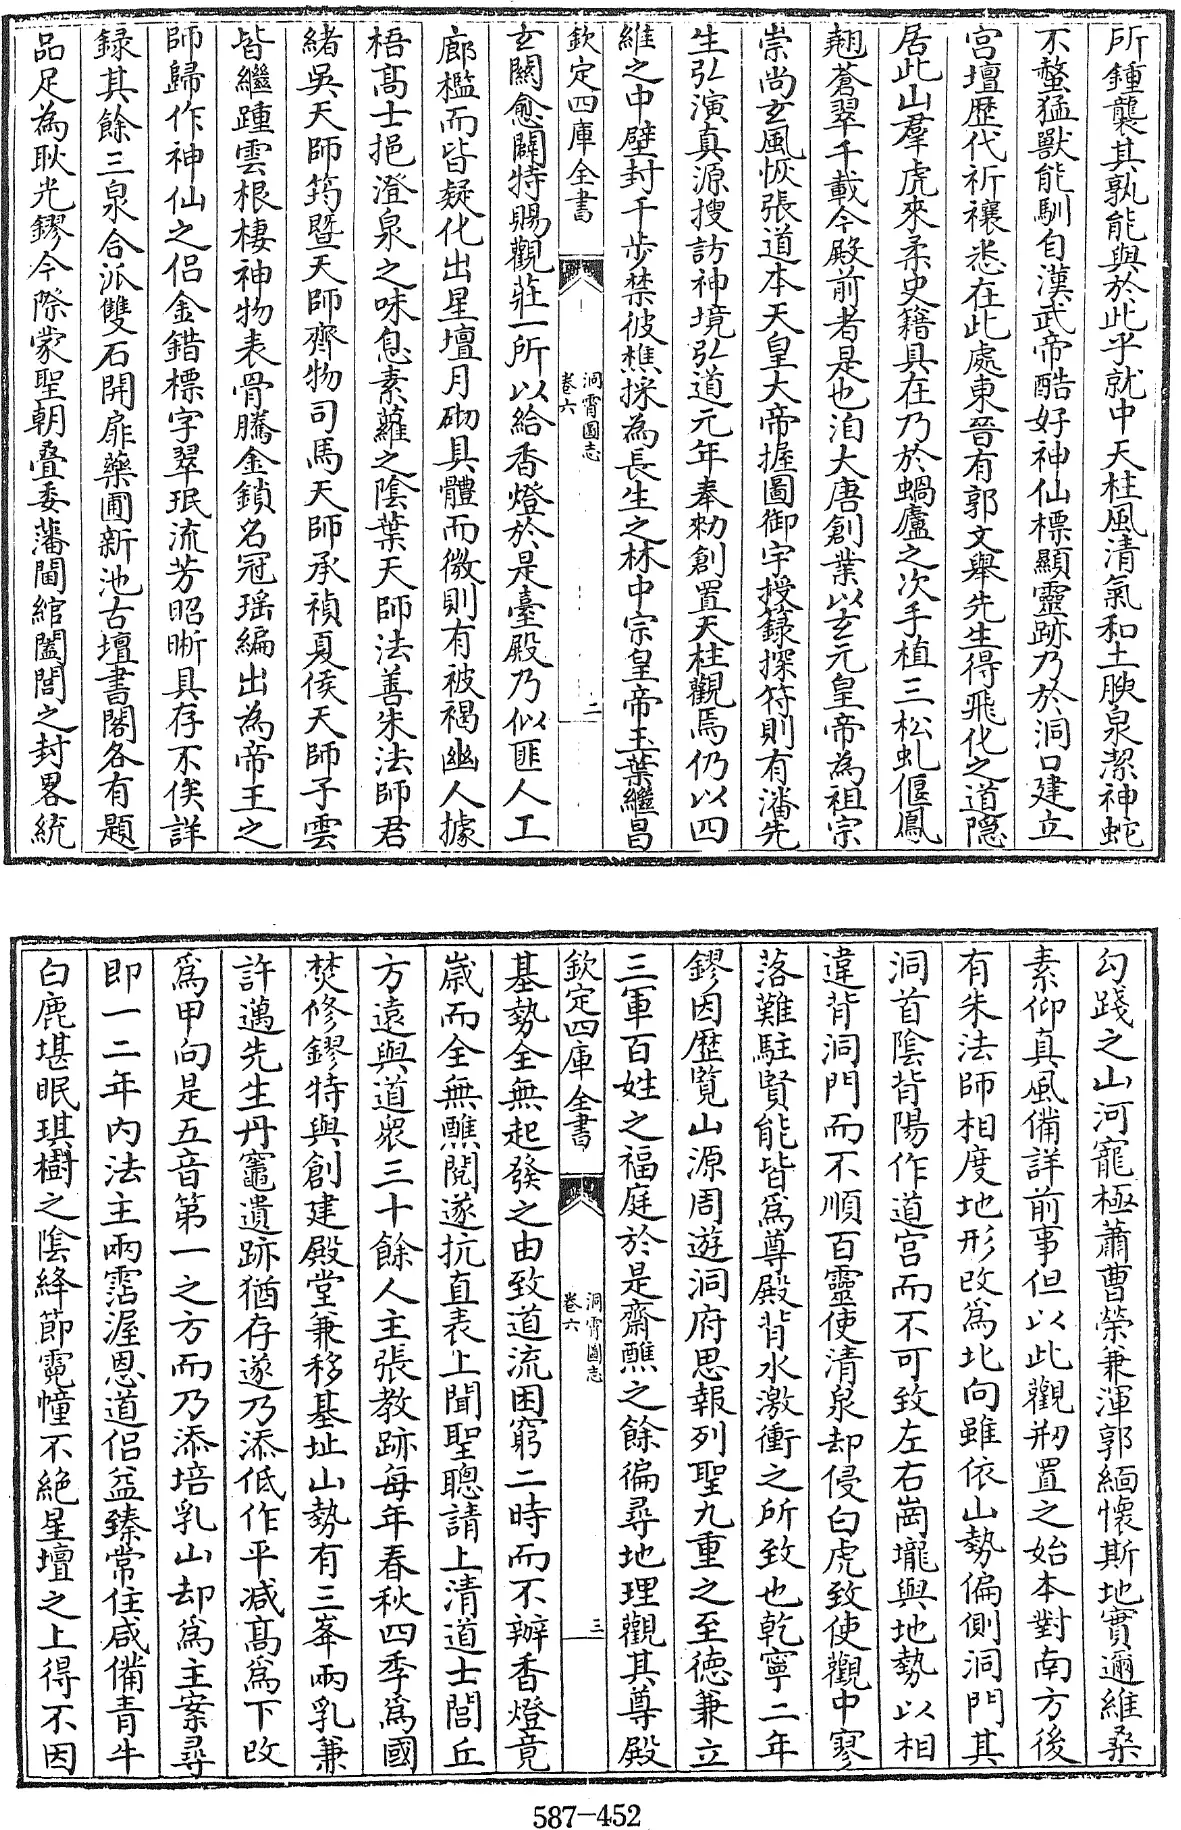 所鍾襲其孰能與於此乎就中天柱風清氣和土腴泉潔神蛇
不螫猛獸能馴自漢武帝酷好神仙標顯靈跡乃於洞口建立
宫壇歴代祈禳悉在此處東晉有郭文舉先生得飛化之道隠
居此山羣虎來柔史籍具在乃於蝸廬之次手植三松虬偃鳳
翹蒼翠千載今殿前者是也洎大唐創業以玄元皇帝為祖宗
崇尚玄風恢張道本天皇大帝握圖御宇授籙探符則有潘先
生弘演真源搜訪神境弘道元年奉勑創置天柱觀焉仍以四
維之中壁封千步禁彼樵採為長生之林中宗皇帝玉葉繼昌
欽定四庫全書
洞霄圖志
卷六
二
玄關愈闢特賜觀莊一所以給香燈於是臺殿乃似匪人工
廊檻而皆疑化出星壇月砌具體而微則有被褐幽人據
梧高士挹澄泉之味息素蘿之陰葉天師法善朱法師君
緒吳天師筠暨天師齊物司馬天師承禎夏侯天師子雲
皆繼踵雲根棲神物表骨騰金鎖名冠瑶編出為帝王之
師歸作神仙之侣金錯標字翠珉流芳昭晣具存不俟詳
録其餘三泉合派雙石開扉藥圃新池古壇書閣各有題
品足為耿光鏐今際蒙聖朝叠委藩閫綰闔閭之封畧統
勾踐之山河寵極蕭曹榮兼渾郭緬懷斯地實邇維桑
素仰真風備詳前事但以此觀剏置之始本對南方後
有朱法師相度地形改爲北向雖依山勢偏側洞門其
洞首陰背陽作道宫而不可致左右崗壠與地勢以相
違背洞門而不順百靈使清泉却侵白虎致使觀中寥
落難駐賢能皆爲尊殿背水激衝之所致也乾寧二年
鏐因歴覧山源周遊洞府思報列聖九重之至徳兼立
三軍百姓之福庭於是齋醮之餘徧尋地理觀其尊殿
欽定四庫全書
洞霄圖志
卷六
三
基勢全無起發之由致道流困窮二時而不辦香燈竟
嵗而全無醮閱遂抗直表上聞聖聰請上清道士閭丘
方遠與道衆三十餘人主張教跡每年春秋四季爲國
焚修鏐特與創建殿堂兼移基址山勢有三峯兩乳兼
許邁先生丹竈遺跡猶存遂乃添低作平减高爲下改
爲甲向是五音第一之方而乃添培乳山却爲主案尋
即一二年内法主兩霑渥恩道侣益臻常住咸備青牛
白鹿堪眠琪樹之隂絳節霓幢不絶星壇之上得不因
587-452